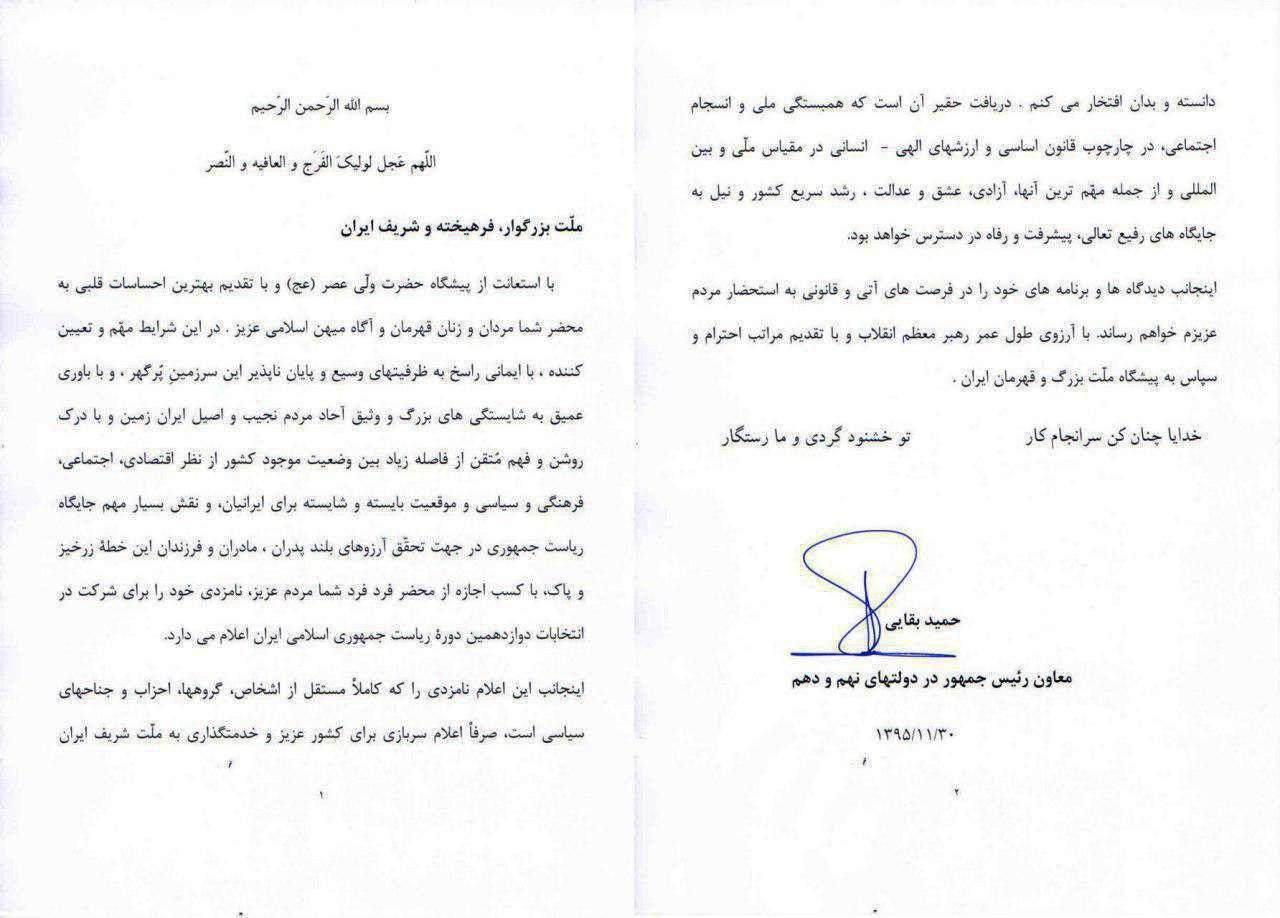 بسم الله الرّحمن الرّحیم
اللّهم عَجل لولیکَ الفَرَج و العافیه و النّصر
ملّت بزرگوار، فرهیخته و شریف ایران
با استعانت از پیشگاه حضرت ولّی عصر (عج) و با تقدیم بهترین احساسات قلبی به
محضر شما مردان و زنان قهرمان و آگاه میهن اسلامی عزیز . در این شرایط مهّم و تعیین
کننده ، با ایمانی راسخ به ظرفیتهای وسیع و پایان ناپذیر این سرزمینِ پُرگهر ، و با باوری
عمیق به شایستگی های بزرگ و وثیق آحاد مردم نجیب و اصیل ایران زمین و با درک
روشن و فهم مُتقن از فاصله زیاد بین وضعیت موجود کشور از نظر اقتصادی، اجتماعی،
فرهنگی و سیاسی و موقعیت بایسته و شایسته برای ایرانیان، و نقش بسیار مهم جایگاه
ریاست جمهوری در جهت تحقّق آرزوهای بلند پدران ، مادران و فرزندان این خطۀ زرخیز
و پاک، با کسب اجازه از محضر فرد فرد شما مردم عزیز، نامزدی خود را برای شرکت در
انتخابات دوازدهمین دورۀ ریاست جمهوری اسلامی ایران اعلام می دارد.
اینجانب این اعلام نامزدی را که کاملاً مستقل از اشخاص، گروهها، احزاب و جناحهای
سیاسی است، صرفاً اعلام سربازی برای کشور عزیز و خدمتگذاری به ملّت شریف ایران
۱
دانسته و بدان افتخار می کنم . دریافت حقیر آن است که همبستگی ملی و انسجام
اجتماعی، در چارچوب قانون اساسی و ارزشهای الهی - انسانی در مقیاس ملّی و بین
المللی و از جمله مهّم ترین آنها، آزادی، عشق و عدالت ، رشد سریع کشور و نیل به
جایگاه های رفیع تعالی، پیشرفت و رفاه در دسترس خواهد بود.
اینجانب دیدگاه ها و برنامه های خود را در فرصت های آتی و قانونی به استحضار مردم
عزیزم خواهم رساند. با آرزوی طول عمر رهبر معظم انقلاب و با تقدیم مراتب احترام و
سپاس به پیشگاه ملّت بزرگ و قهرمان ایران .
خدایا چنان کن سرانجام کار تو خشنود گردی و ما رستگار
حمید بقایی
معاون رئیس جمهور در دولتهای نهم و دهم
۱۳۹۵/۱۱/۳۰
۲